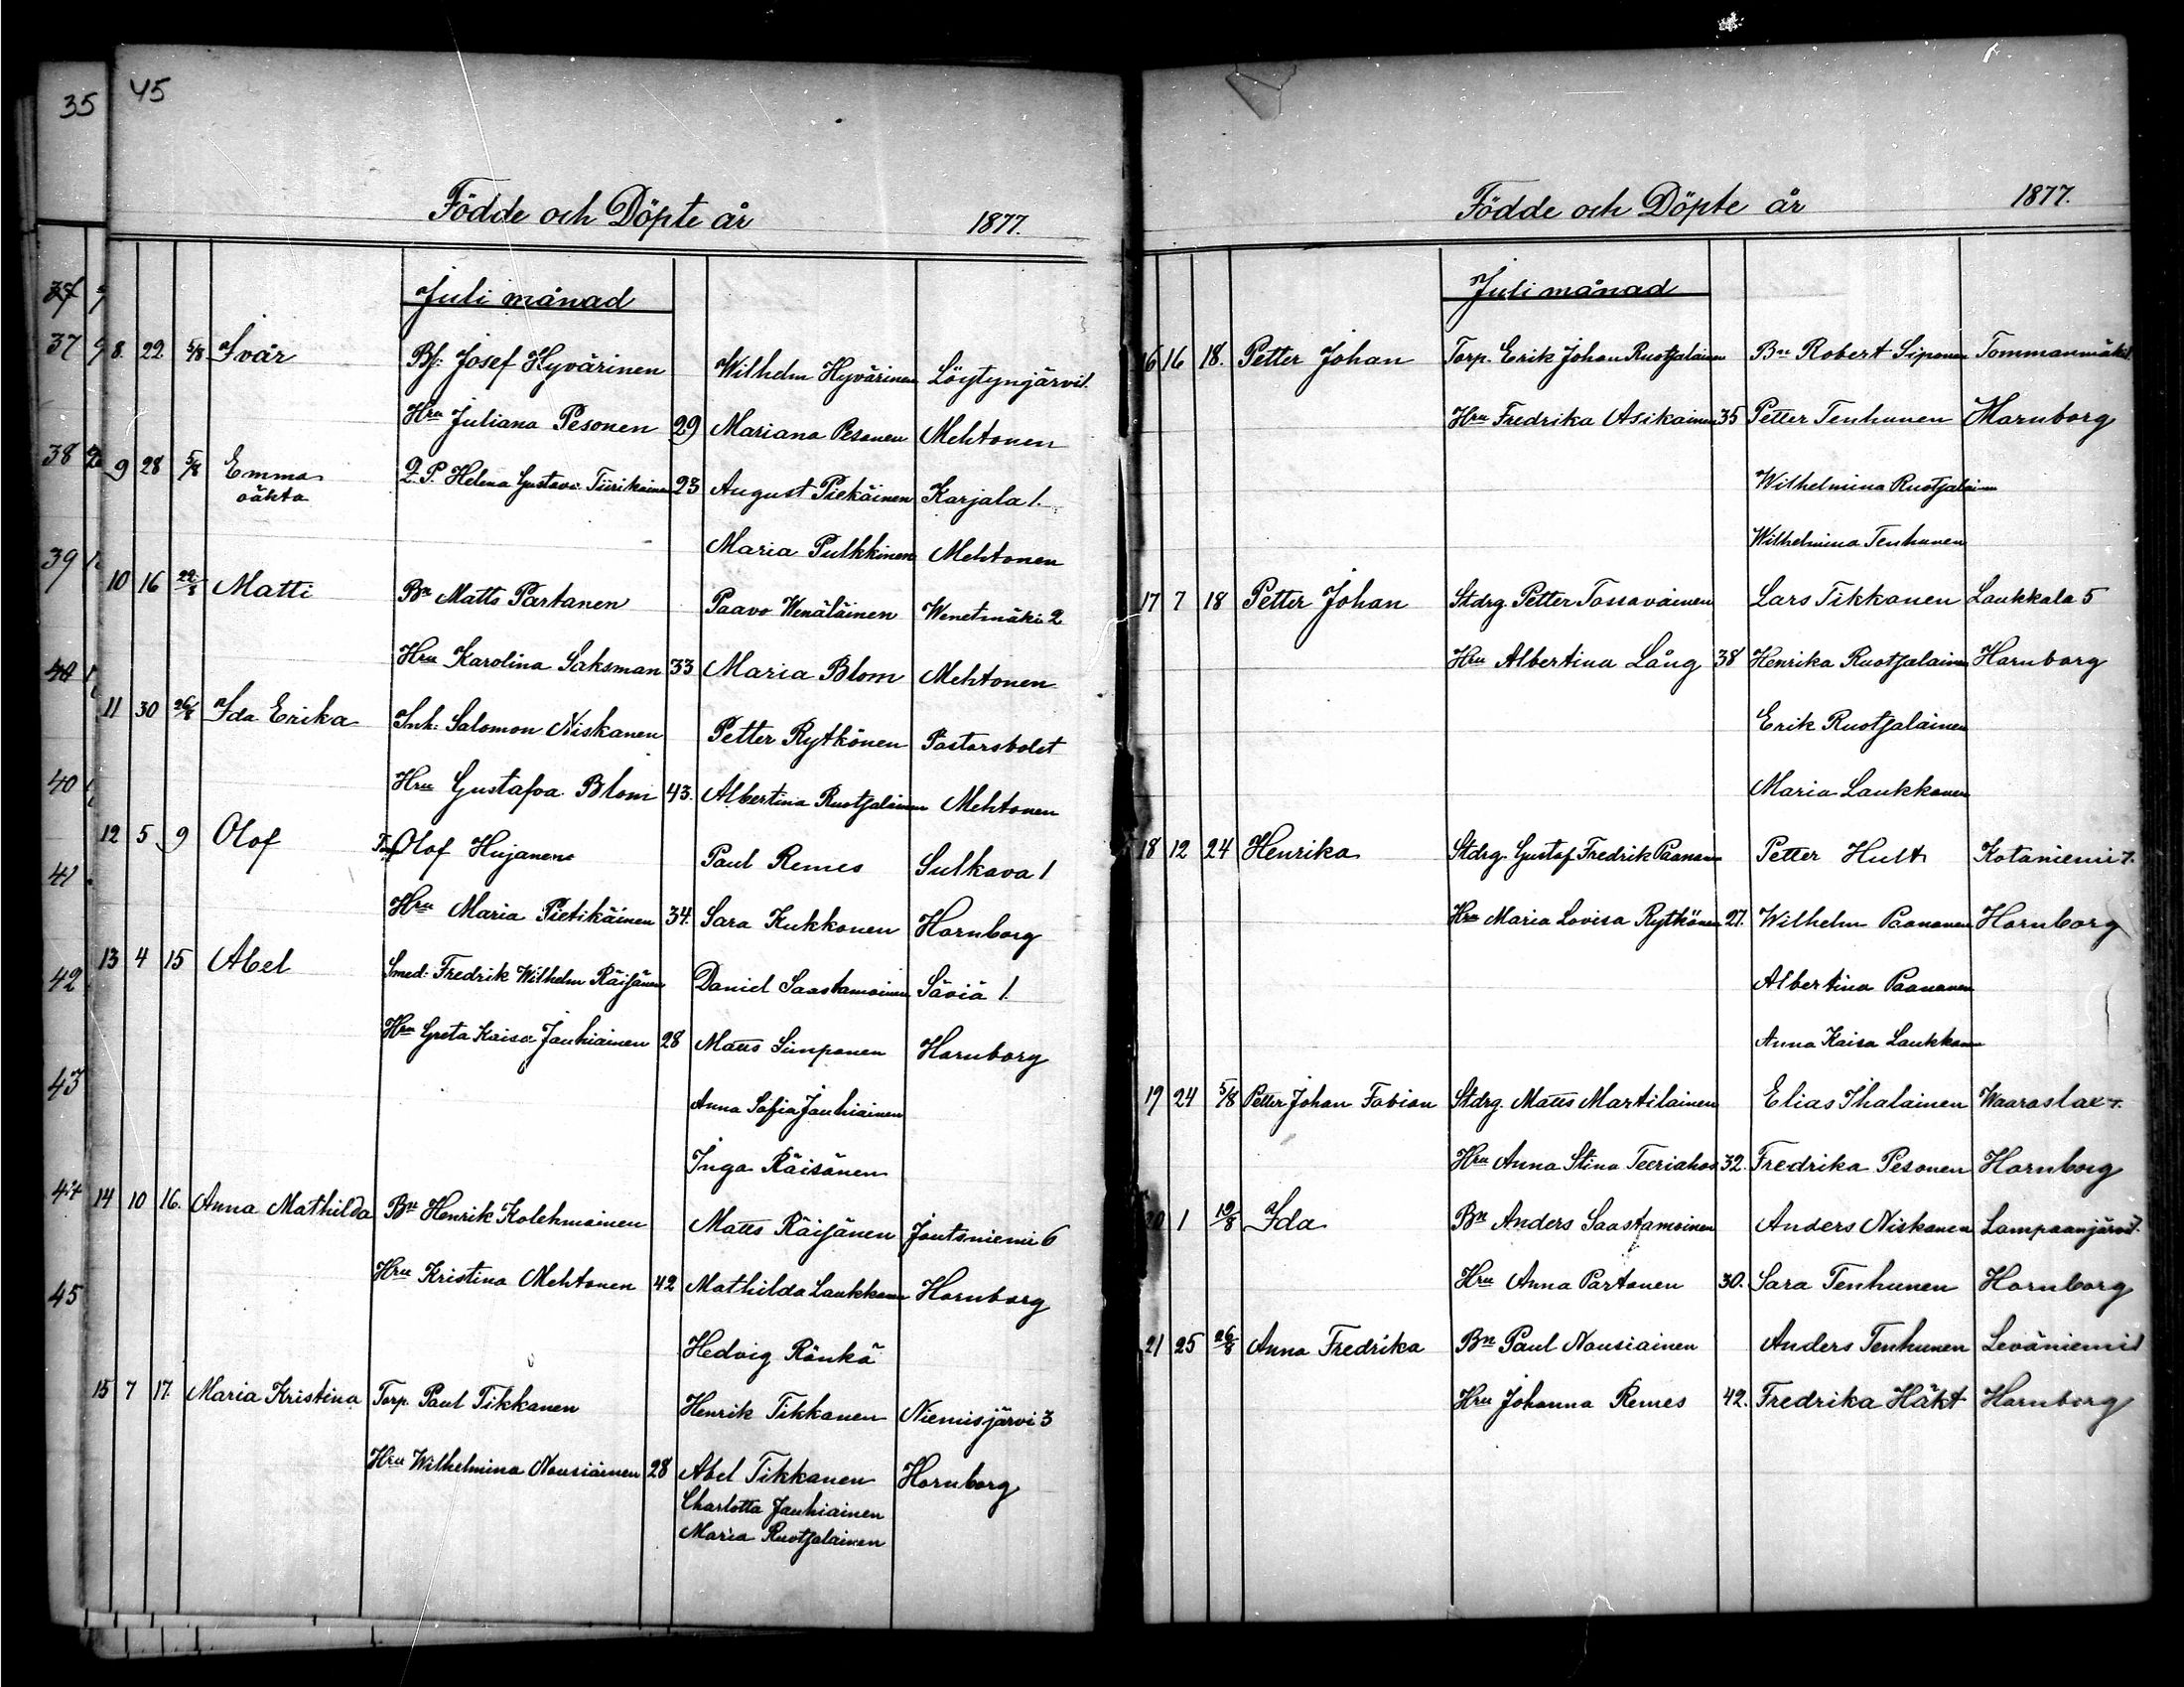 35
45
Födde och Döpte år 1877.
Juli månad
37
37
38
39
40
40
41
42
43
44
45
8. 22. 5/8 Ivar Bf: Josef Hyvärinen Wilhelm Hyvärinen Löytynjärvi 1.
Hru Juliana Pesonen 29 Mariana Pesonen Mehtonen
9 28 5/8 Emma Q. P. Helena Gustava Tiirikainen 23 August Piekäinen Karjala 1.
oäkta
Maria Pulkkinen Mehtonen
10 16 Matti Bn Matts Partanen Paavo Wenäläinen Wenetmäki 2
Hru Karolina Saksman 33 Maria Blom Mehtonen
11 30 26/8 Ida Erika Inh: Salomon Niskanen Petter Rytkönen Pastorsbolet
Hru Gustafva Blom 43. Albertina Ruotsalainen Mehtonen
12 5 9 Olof Olof Hujanen Paul Remes Sulkava 1
Hru Maria Pietikäinen 34. Sara Kukkonen Hornborg
13 4 15 Abel Smed: Fredrik Wilhelm Räisänen Daniel Saastamoinen Säviä 1.
Hru Greta Kaisa Jauhiainen 28 Matts Simponen Hornborg
Anna Sofia Jauhiainen
Inga Räisänen
14 10 16. Anna Mathilda Bn Henrik Kolehmainen Matts Räisänen Joutsniemi 6
Hru Kristina Mehtonen 42 Mathilda Laukkanen Hornborg
Hedvig Rönkä
15 7 17. Maria Kristina Torp. Paul Tikkanen Henrik Tikkanen Niemisjärvi 3
Hru Wilhelmina Nousiainen 28 Abel Tikkanen Hornborg
Charlotta Jauhiainen
Maria Ruotsalainen
Födde och Döpte år 1877.
Juli månad
16 16 18. Petter Johan Torp. Erik Johan Ruotsalainen Bn Robert Siponen Tommanmäki 1
Hru Fredrika Asikainen 35 Petter Tenhunen Harnborg
Wilhelmina Ruotsalainen
Wilhelmina Tenhunen
17 7 18 Petter Johan Stdrg. Petter Tossavainen Lars Tikkanen Laukkala 5
Hru Albertina Lång 38 Henrika Ruotsalainen Harnborg
Erik Ruotsalainen
Maria Laukkanen
18 12 24 Henrika Stdrg. Gustaf Fredrik Paananen Petter Hult Kotaniemi 7.
Hru Maria Lovisa Rytkönen 27. Wilhelm Paananen Hornborg
Albertina Paananen
Anna Kaisa Laukkanen
19 24 5/8 Petter Johan Fabian Stdrg. Matts Martilainen Elias Ihalainen Waaraslax 7.
Hru Anna Stina Teeriaho 32. Fredrika Pesonen Hornborg
20 1 12/8 Ida Bn Anders Saastamoinen Anders Niskanen Lampaanjärvi 1.
Hru Anna Partanen 30. Sara Tenhunen Hornborg
21 25 26/8 Anna Fredrika Bn Paul Nousiainen Anders Tenhunen Leväniemi 1
Hru Johanna Remes 42. Fredrika Häkt Hornborg